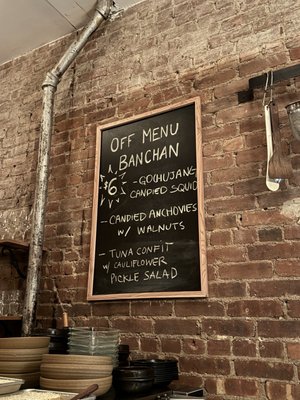 OFF MENU
BANCHAN
6
- GOCHUJANG
CANDIED SQUID
- CANDIED ANCHOVIES
w/ WALNUTS
- TUNA CONFIT
w/ CAULIFLOWER
PICKLE SALAD